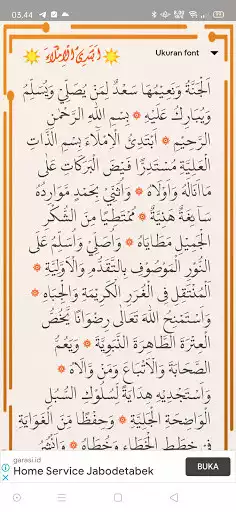 03.44
55
ابتدئ الإملاء
Ukuran font
اَلْجَنَّةُ وَنَعِيْمُهَا سَعْدٌ لِمَنْ يُصَلِّيْ وَيُسَلِّمُ
وَيُبَارِكُ عَلَيْهِ ۞ بِسْمِ اللهِ الرَّحْمٰنِ
الرَّحِيْمِ ۞ أَبْتَدِئُ الْإِمْلَاءَ بِسْمِ الذَّاتِ
الْعَلِيَّةِ مُسْتَدِرًّا فَيْضَ الْبَرَكَاتِ عَلَى
مَا أَنَالَهُ وَأَوْلَاهُ ۞ وَأُثَنِّيْ بِحَمْدٍ مَوَارِدُهُ
سَائِغَةٌ هَنِيَّةٌ ۞ مُمْتَطِيًا مِنَ الشُّكْرِ
الْجَمِيْلِ مَطَايَاهُ ۞ وَأُصَلِّيْ وَأُسَلِّمُ عَلَى
النُّوْرِ الْمَوْصُوْفِ بِالتَّقَدُّمِ وَالْأَوَّلِيَّةِ ۞
الْمُنْتَقِلِ فِي الْغُرَرِ الْكَرِيْمَةِ وَالْجِبَاهِ ۞
وَأَسْتَمْنِحُ اللهَ تَعَالَى رِضْوَانًا يَخُصُّ
الْعِتْرَةَ الطَّاهِرَةَ النَّبَوِيَّةَ ۞ وَيَعُمُّ
الصَّحَابَةَ وَالْأَتْبَاعَ وَمَنْ وَالَاهُ ۞
وَأَسْتَجْدِيْهِ هِدَايَةً لِسُلُوْكِ السُّبُلِ
الْوَاضِحَةِ الْجَلِيَّةِ ۞ وَحِفْظًا مِنَ الْغَوَايَةِ
فِيْ خِطَطِ الْخَطَاءِ وَخُطَاهُ ۞ وَأَنْشُرُ
garasi.id
Home Service Jabodetabek
BUKA